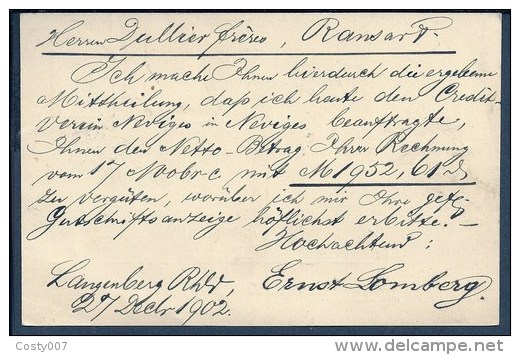 Herren Dullier frères, Ransart.
Ich mache Ihnen hierdurch die ergebene
Mittheilung, daß ich heute den Credit-
verein Neviges in Neviges beauftragte,
Ihnen den Netto-Betrag Ihrer Rechnung
vom 17 Novbr c. mit M 1952,61 d
zu vergüten, worüber ich mir Ihre gefl.
Gutschriftsanzeige höflichst erbitte. –
Hochachtend:
Langenberg Rhld, Ernst Lomberg.
27 Decbr 1902.
Costy007
www.delcampe.net